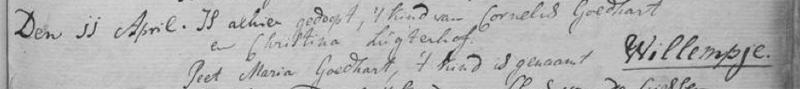 Den 11 April. Is alhier gedoopt, 't kind van Cornelis Goedhart
en Christina Lugterhof.
Peet Maria Goedhart, 't kind is genaamt Willempje.